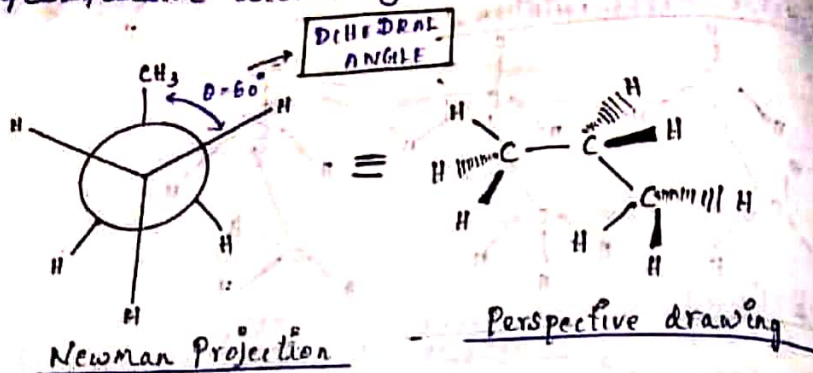 DIHEDRAL
ANGLE
CH3
θ=60°
H
H
H
H
H
≡
H
H
H
C
C
H
H
C
H
H
H
Newman Projection
- Perspective drawing